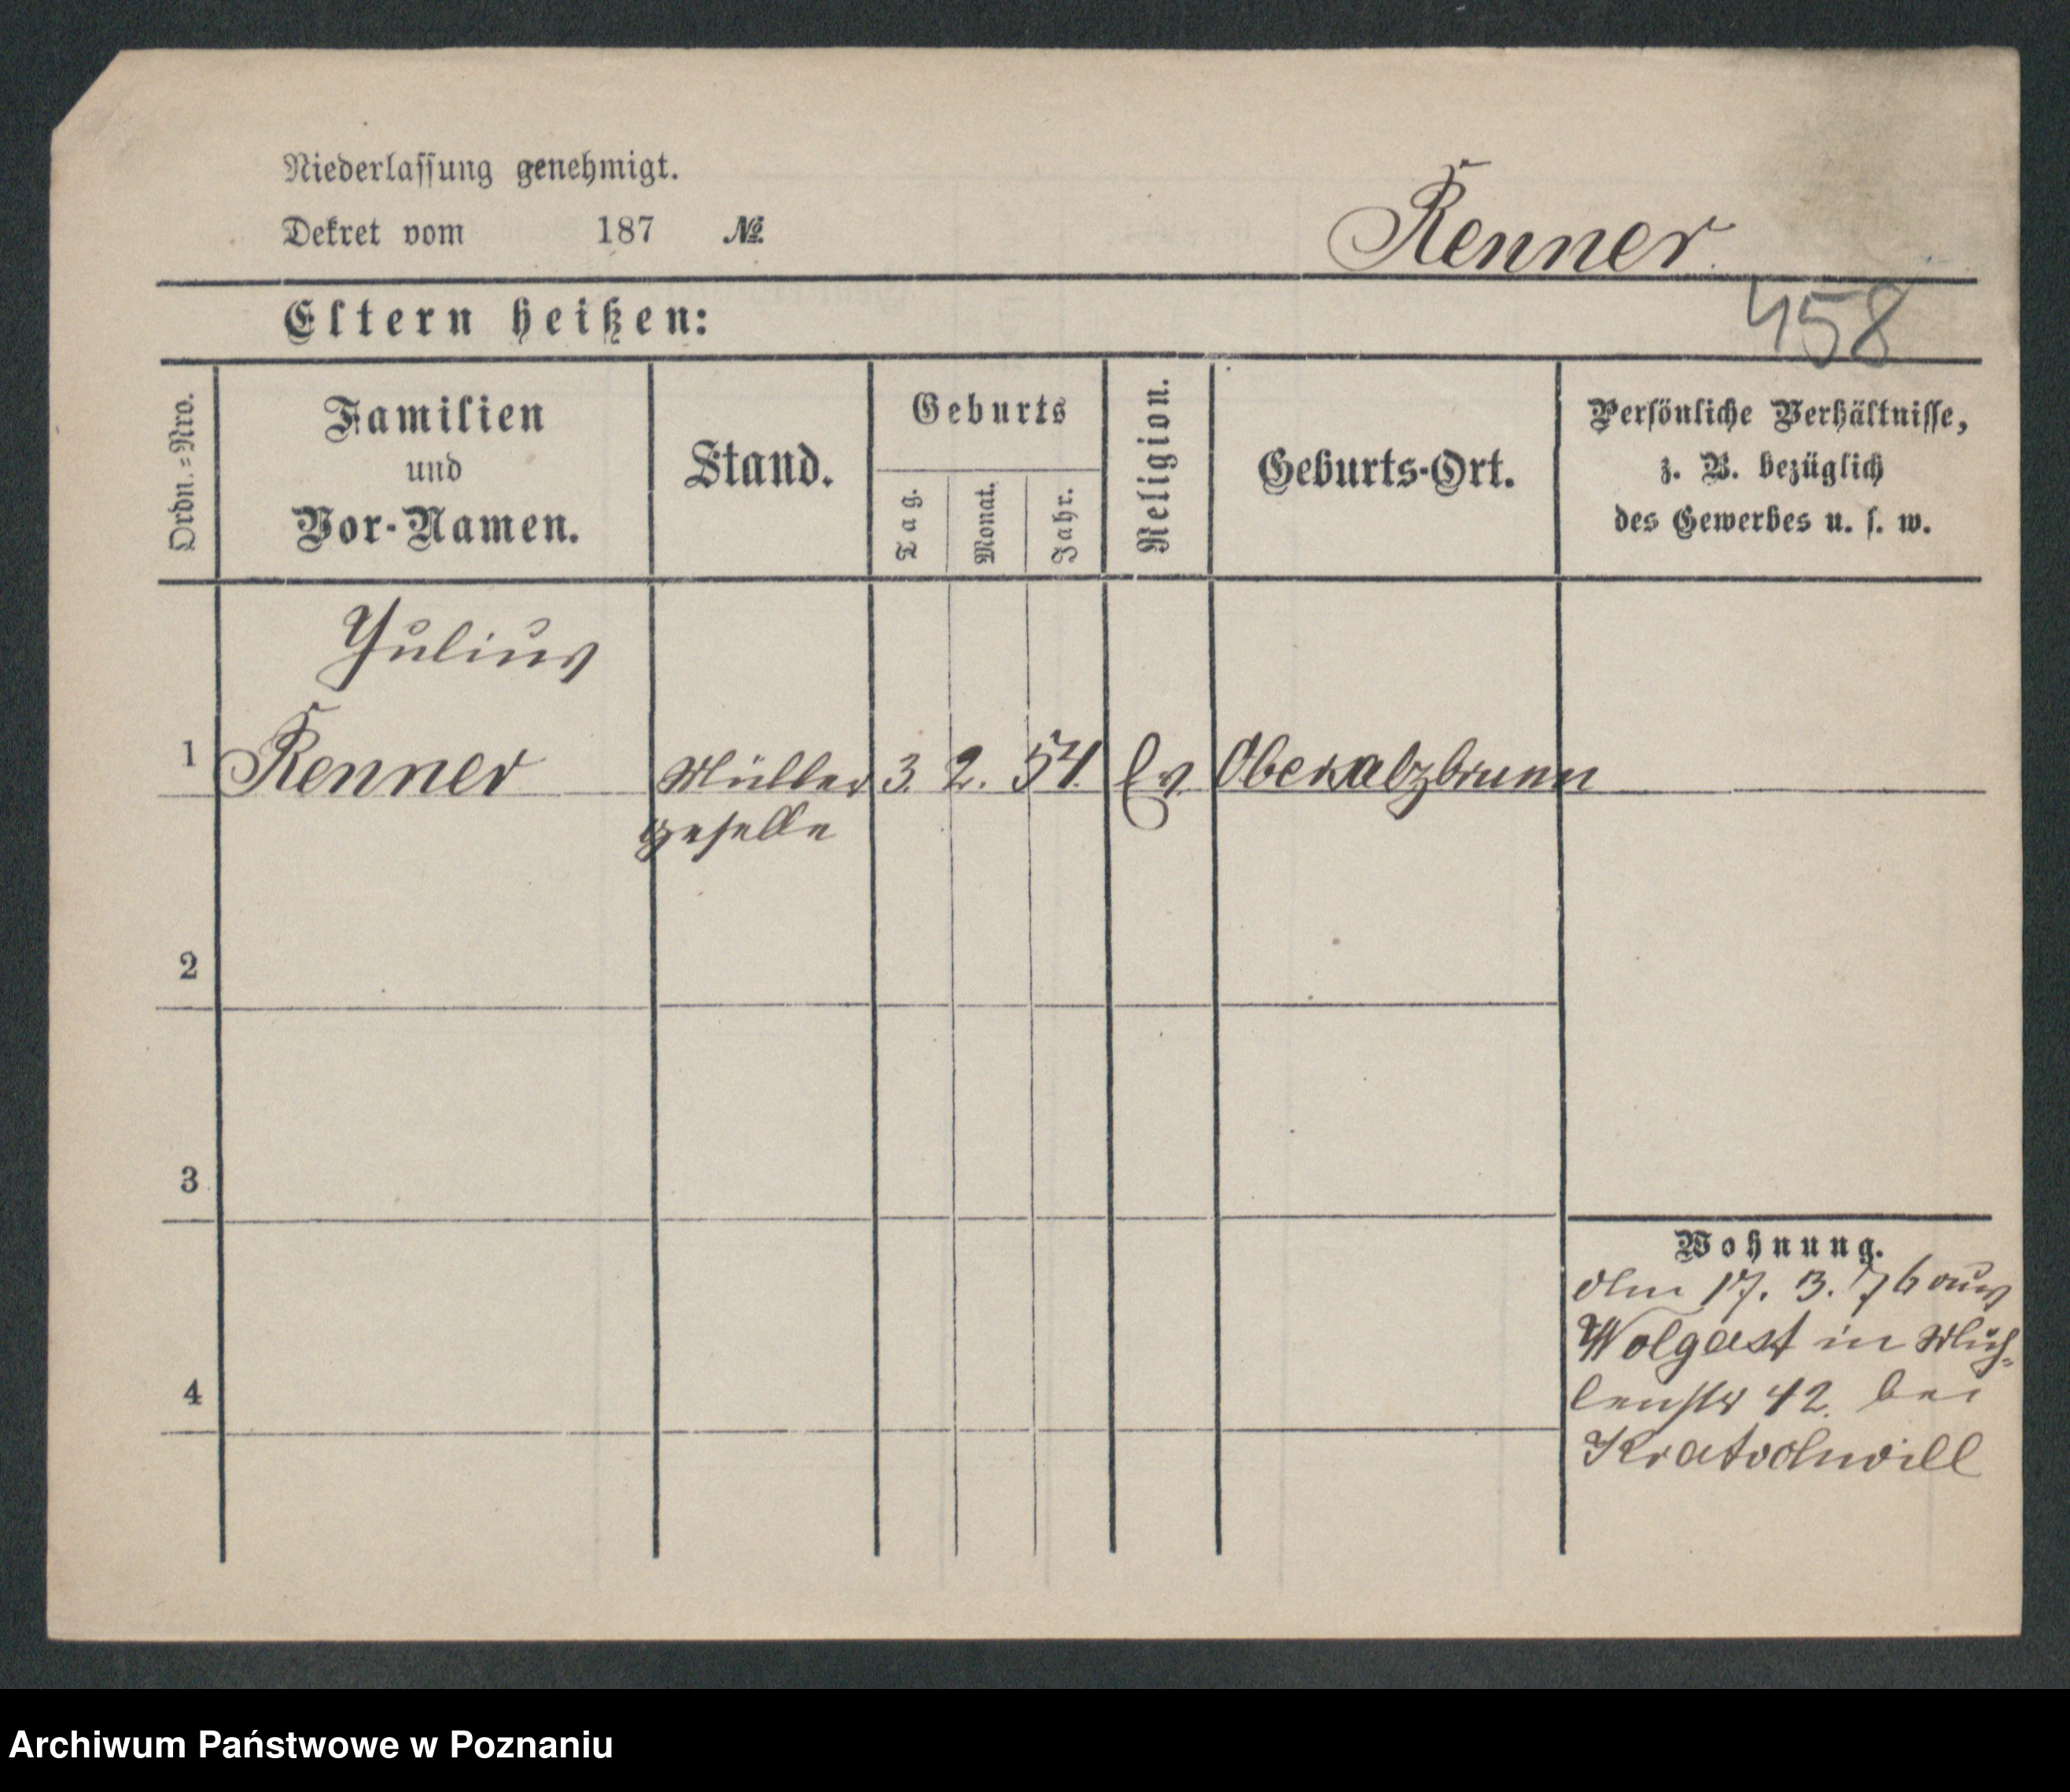 Niederlassung genehmigt.
Dekret vom 187 №
Renner
Eltern heißen:
458
Ordn.=Nro.
Familien
und
Vor-Namen.
Stand.
Geburts
Tag.
Monat.
Jahr.
Religion.
Geburts-Ort.
Persönliche Verhältnisse,
z. B. bezüglich
des Gewerbes u. s. w.
Julius
1 Renner Müller 3. 2. 54. Ev. Obersalzbrunn
geselle
2
3
4
Wohnung.
17. 3. 76 aus
Wolgast in Müh-
lenstr 42. bei
Archiwum Państwowe w Poznaniu